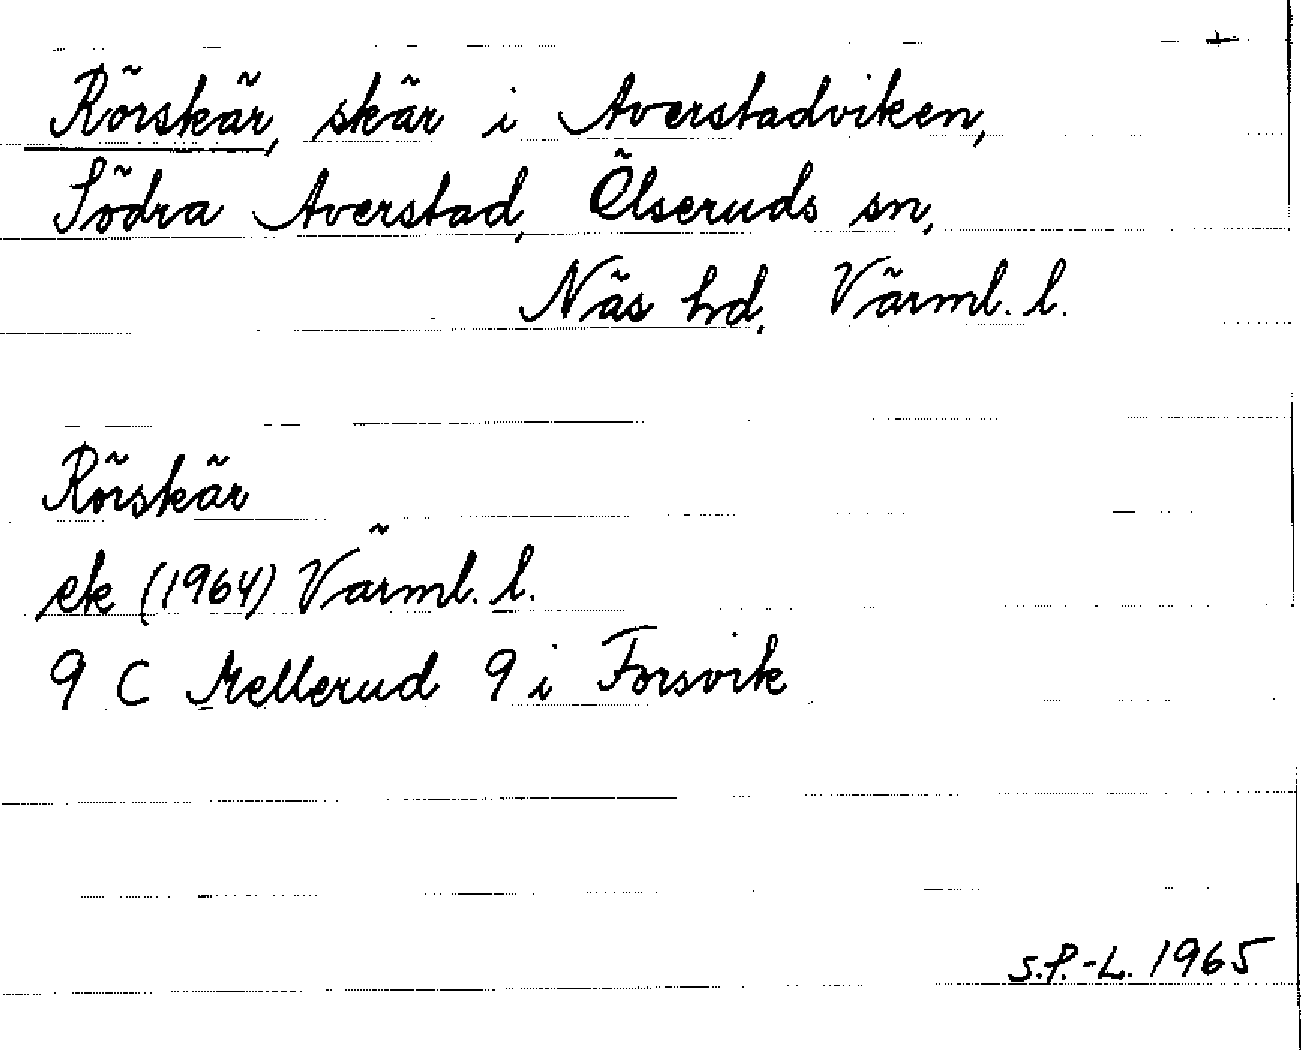 +
Rörskär, skär i Averstadviken,
Södra Averstad, Ölseruds sn,
Näs hd, Värml. l.
Rörskär
ek (1964) Värml. l.
9 C Mellerud 9 i Forsvik
S.P.-L. 1965